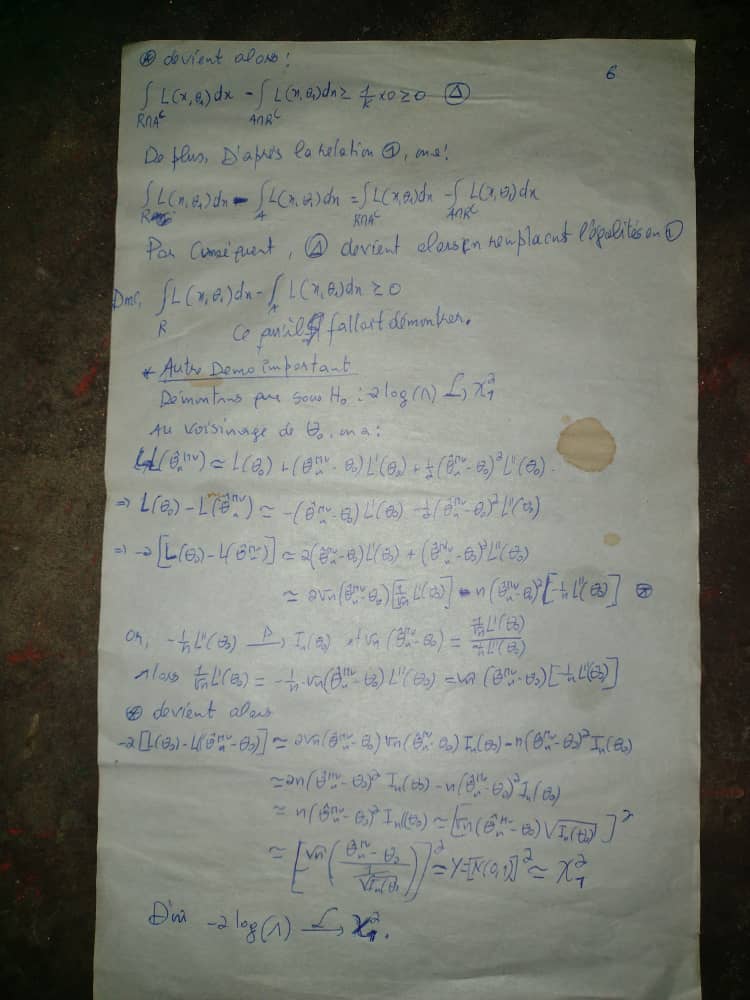 ⊛ devient alors :
6
∫_{R∩A^c} L(x,θ₁)dx - ∫_{A∩R^c} L(x,θ₁)dx ≥ 1/k × 0 ≥ 0 Ⓐ
De plus, D'après la relation ①, on a :
∫_R L(x,θ₁)dx - ∫_A L(x,θ₁)dx = ∫_{R∩A^c} L(x,θ₁)dx - ∫_{A∩R^c} L(x,θ₁)dx
Par Conséquent, Ⓐ devient alors en remplacant l'égalités en ①
Donc, ∫_R L(x,θ₁)dx - ∫_A L(x,θ₁)dx ≥ 0
Ce qu'il fallait démontrer.
* Autre Demo important
Démontrons que sous H₀ : -2log(Λ) →^L χ²₁
Au voisinage de θ₀, on a :
L(θ̂ₙ^{MV}) ≃ L(θ₀) + (θ̂ₙ^{MV} - θ₀) L'(θ₀) + 1/2 (θ̂ₙ^{MV} - θ₀)² L''(θ₀).
⇒ L(θ₀) - L(θ̂ₙ^{MV}) ≃ -(θ̂ₙ^{MV} - θ₀) L'(θ₀) - 1/2 (θ̂ₙ^{MV} - θ₀)² L''(θ₀)
⇒ -2[L(θ₀) - L(θ̂ₙ^{MV})] ≃ 2(θ̂ₙ^{MV} - θ₀) L'(θ₀) + (θ̂ₙ^{MV} - θ₀)² L''(θ₀)
≃ 2√n (θ̂ₙ^{MV} - θ₀) [1/√n L'(θ₀)] - n(θ̂ₙ^{MV} - θ₀)² [-1/n L''(θ₀)] ⊛
Or, -1/n L''(θ₀) →^P Iₙ(θ₀) et √n (θ̂ₙ^{MV} - θ₀) = (1/√n L'(θ₀)) / (-1/n L''(θ₀))
Alors 1/√n L'(θ₀) = -1/n √n (θ̂ₙ^{MV} - θ₀) L''(θ₀) = √n (θ̂ₙ^{MV} - θ₀) [-1/n L''(θ₀)]
⊛ devient alors
-2[L(θ₀) - L(θ̂ₙ^{MV} - θ₀)] ≃ 2√n (θ̂ₙ^{MV} - θ₀) √n (θ̂ₙ^{MV} - θ₀) Iₙ(θ₀) - n(θ̂ₙ^{MV} - θ₀)² Iₙ(θ₀)
≃ 2n(θ̂ₙ^{MV} - θ₀)² Iₙ(θ₀) - n(θ̂ₙ^{MV} - θ₀)² Iₙ(θ₀)
≃ n(θ̂ₙ^{MV} - θ₀)² Iₙ(θ₀) ≃ [√n (θ̂ₙ^{MV} - θ₀) √Iₙ(θ₀)]²
≃ [√n ((θ̂ₙ^{MV} - θ₀) / (1/√Iₙ(θ₀)))]² ≃ Y = [N(0,1)]² ≃ χ²₁
D'où -2log(Λ) →^L χ²₁.